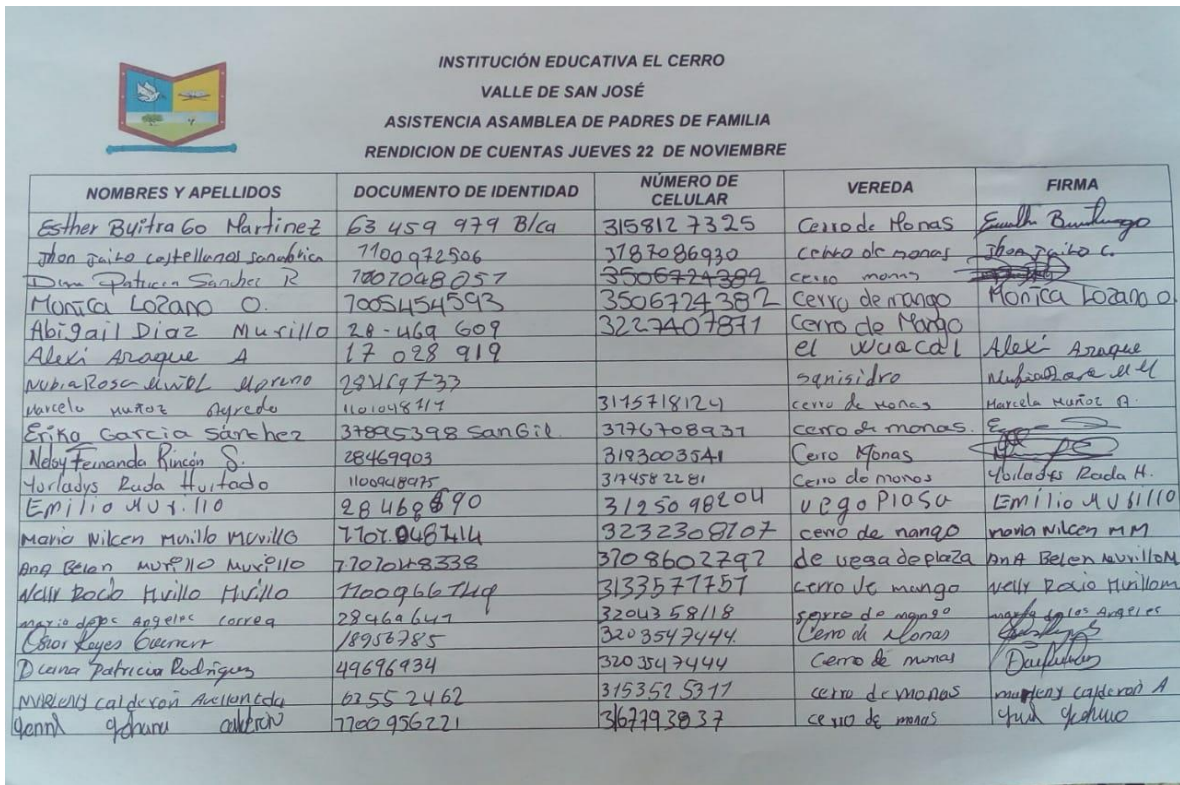 INSTITUCIÓN EDUCATIVA EL CERRO
VALLE DE SAN JOSÉ
ASISTENCIA ASAMBLEA DE PADRES DE FAMILIA
RENDICION DE CUENTAS JUEVES 22 DE NOVIEMBRE
NOMBRES Y APELLIDOS DOCUMENTO DE IDENTIDAD NÚMERO DE CELULAR VEREDA FIRMA
Esther Buitrago Martinez 63 459 979 B/ca 315812 7325 Cerro de Monas
Jhon Jairo castellanos 1100972506 3187086930 cerro de monas Jhon Jairo C.
Patricia Sanchez R 3506724382 cerro monas
Monica Lozano O. 1005454593 3506724382 Cerro de mango Monica Lozano O
Abigail Diaz Murillo 28-469 609 3227407871 Cerro de Mango
Alexi Araque A 17 028 919 el wuacal Alexi Araque
Nubia Rosa Moreno 28469733 sanisidro
Marcela Muñoz 3175718124 cerro de Monas Marcela Muñoz A.
Erika Garcia Sánchez 37895398 SanGil 3176708931 cerro de monas.
Nelsy Fernanda Rincón S. 28469903 3183003541 Cerro Monas
Yorladys Rada Hurtado 1100948975 317458 2281 Cerro de monas Yorladys Rada H.
Emilio Murillo 31250 98204 Emilio
Maria Nilcen Murillo Murillo 3232308107 cerro de mango maria Nilcen MM
Ana Belen Murillo Murillo 3108602792 de vega de plaza Ana Belen Murillo M
Nelly Rocio 3133577757 cerro de mango Nelly Rocio
maria de los Angeles correa 3204358118 maria de los Angeles
Reyes 18956785 3203547444 Cerro de Monas
Diana Patricia Rodriguez 49696934 3203547444 Cerro de monas
Marleny calderon 63552462 315352 5311 cerro de monas marleny calderon A
calderon 1100 956221 3167793837 cerro de monas